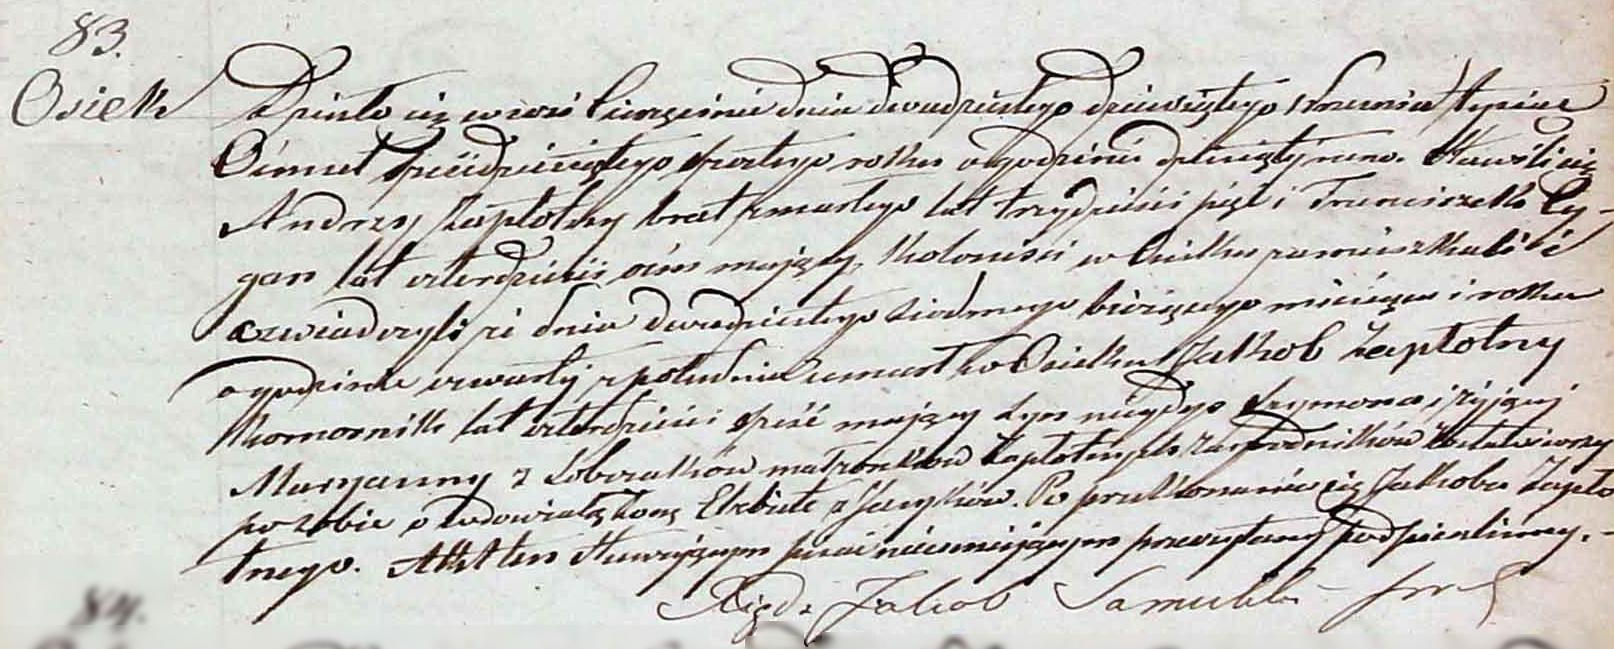 83.
Osiek
Działo się we wsi dnia dwudziestego dziewiątego Tysiąc
Ośmset pięćdziesiątego szóstego roku o godzinie rano. Stawili się
Andrzej Zapłotny brat zmarłego lat trzydzieści pięć i Franciszek Cy-
gan lat czterdzieści ośm mający, koloniści w Osieku zamieszkali i
oświadczyli że dnia dwudziestego siódmego bieżącego miesiąca i roku
o godzinie czwartej z południa umarł w Osieku Jakob Zapłotny
komornik lat czterdzieści sześć mający syn niegdyś Szymona i żyjącej
Maryanny z małżonków Zapłotnych zostawiwszy
po sobie owdowiałą żonę Elżbietę z. Po przekonaniu się Jakoba Zapło
tnego. Akt ten Stawającym pisać nieumiejącym przeczytany podpisaliśmy.-
Xiądz Jakob
84.